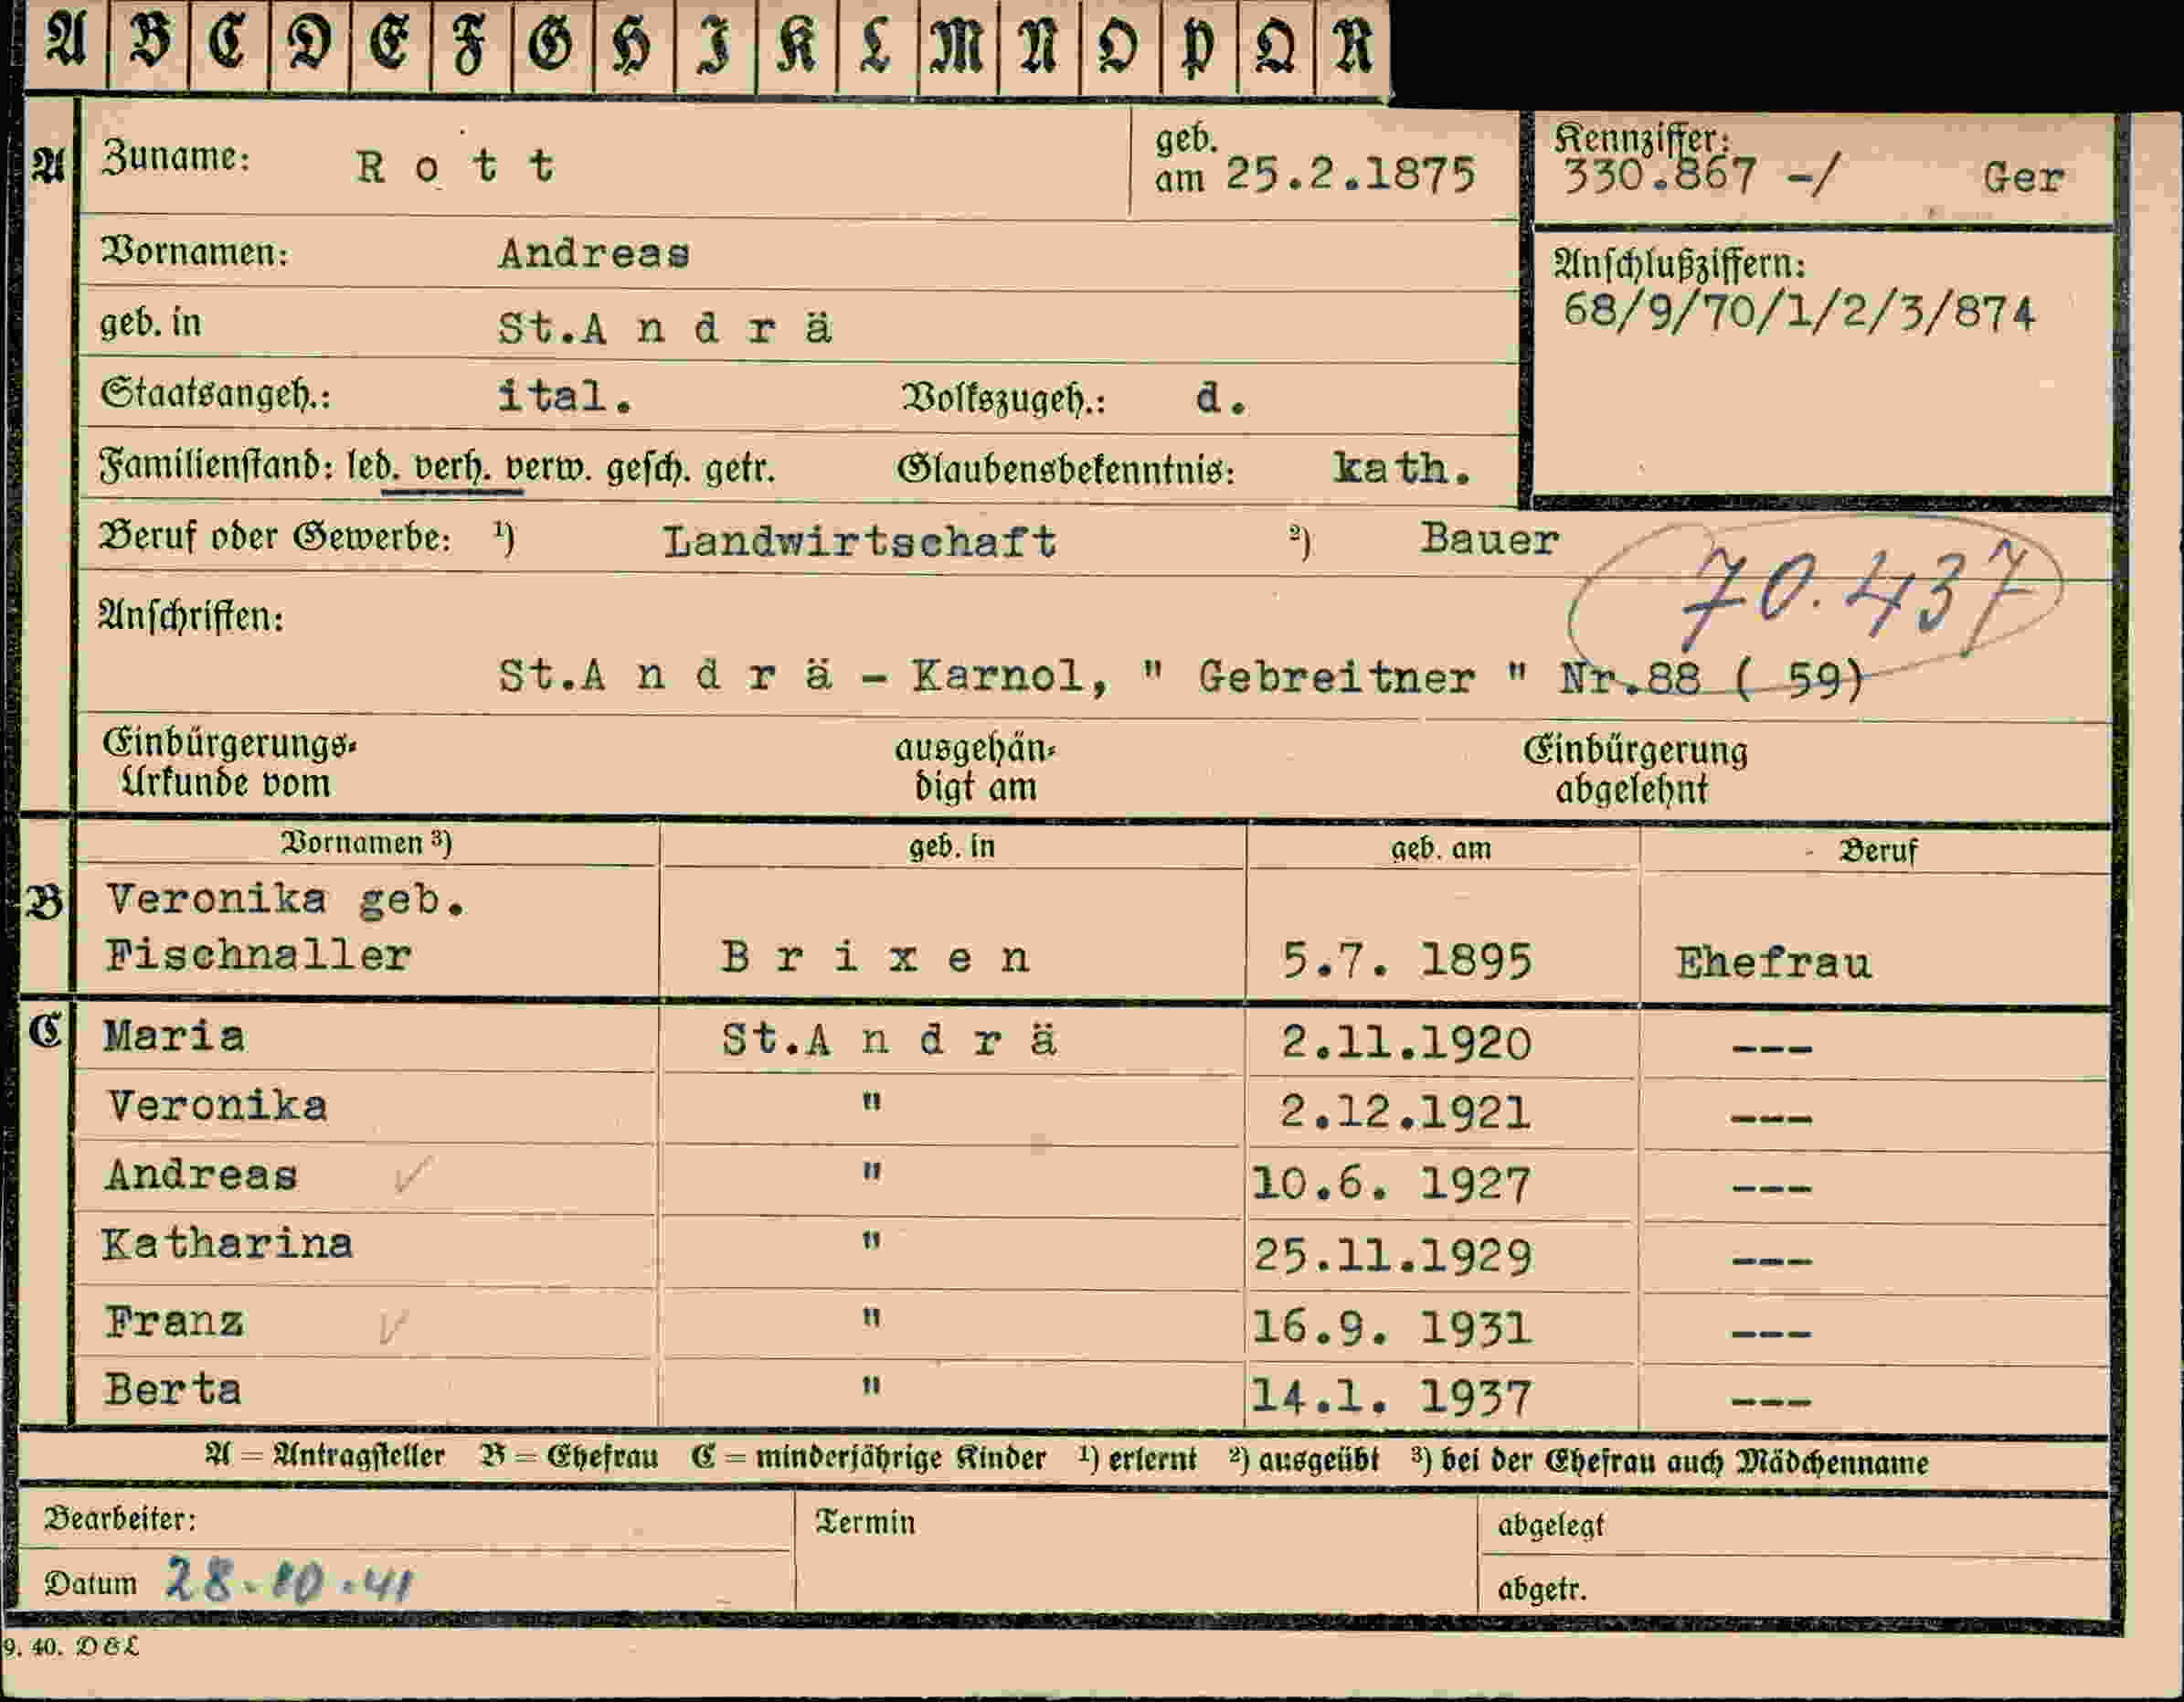 A B C D E F G H I K L M N O P Q R
A Zuname: R o t t geb. am 25.2.1875
Kennziffer: 330.867 -/ Ger
Vornamen: Andreas
Anschlußziffern:
68/9/70/1/2/3/874
geb. in St.A n d r ä
Staatsangeh.: ital. Volkszugeh.: d.
Familienstand: led. verh. verw. gesch. getr. Glaubensbekenntnis: kath.
Beruf oder Gewerbe: ¹) Landwirtschaft ²) Bauer
70.437
Anschriften:
St.A n d r ä - Karnol, " Gebreitner " Nr.88 ( 59)
Einbürgerungs-
Urkunde vom
ausgehän-
digt am
Einbürgerung
abgelehnt
Vornamen ³) geb. in geb. am Beruf
B Veronika geb.
Fischnaller B r i x e n 5.7. 1895 Ehefrau
C Maria St.A n d r ä 2.11.1920 ---
Veronika " 2.12.1921 ---
Andreas ✓ " 10.6. 1927 ---
Katharina " 25.11.1929 ---
Franz ✓ " 16.9. 1931 ---
Berta " 14.1. 1937 ---
A = Antragsteller B = Ehefrau C = minderjährige Kinder ¹) erlernt ²) ausgeübt ³) bei der Ehefrau auch Mädchenname
Bearbeiter: Termin abgelegt
Datum 28.10.41 abgetr.
9. 40. D & L